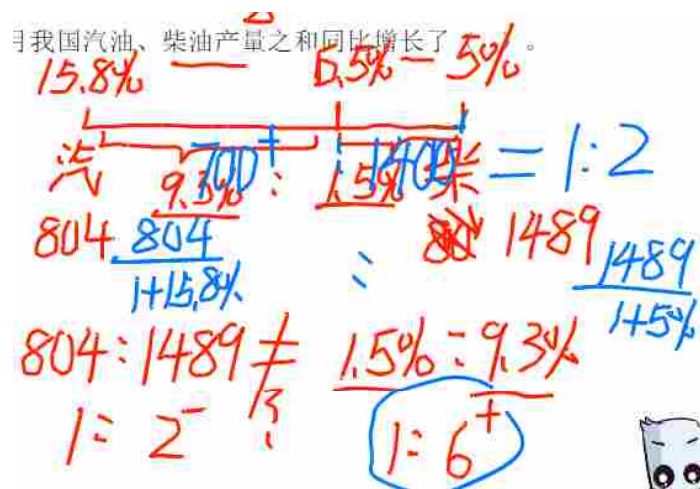 月我国汽油、柴油产量之和同比增长了 。
15.8% — 6.5% — 5%
汽 700 : 1400 柴 = 1:2
9.3% : 1.5%
804 804/1+15.8% : 1489 1489/1+5%
804:1489 ≠ 1.5%:9.3%
1:2⁻ ? 1:6⁺